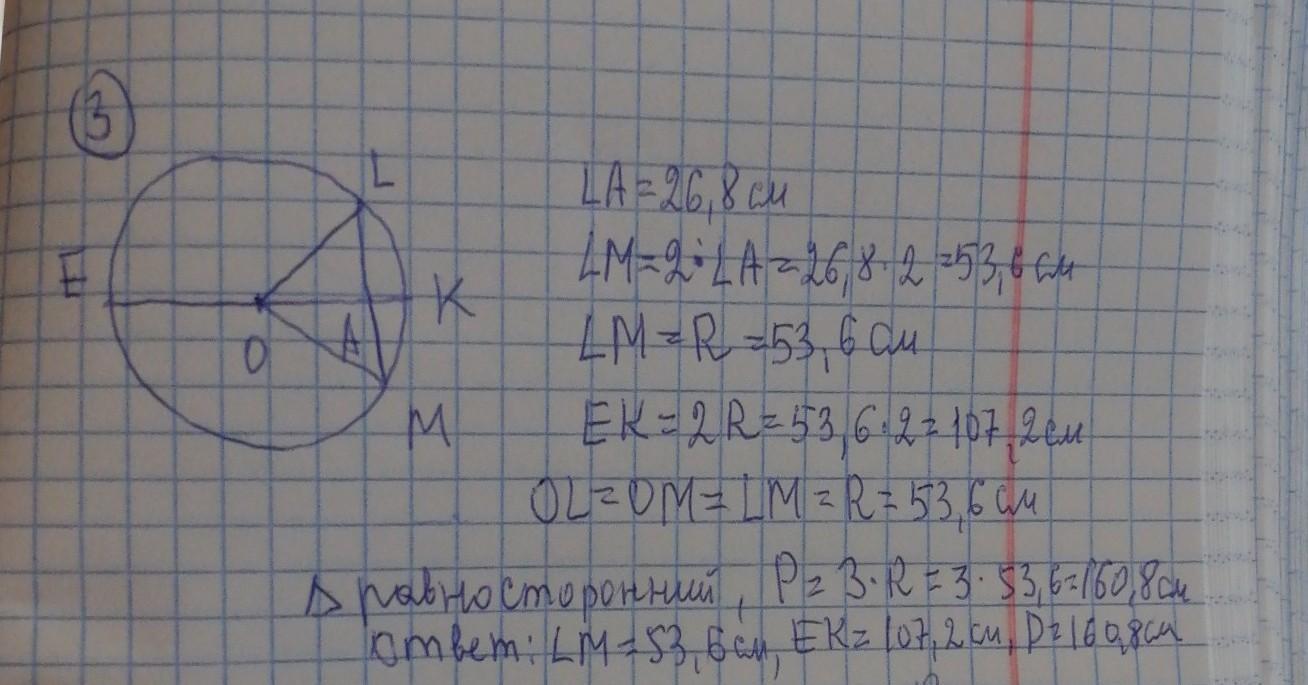 3
L
E
K
O
A
M
LA=26,8см
LM=2·LA=26,8·2=53,6см
LM=R=53,6см
EK=2R=53,6·2=107,2см
OL=OM=LM=R=53,6см
Δ равносторонний, P=3·R=3·53,6=160,8см
Ответ: LM=53,6см, EK=107,2см, P=160,8см